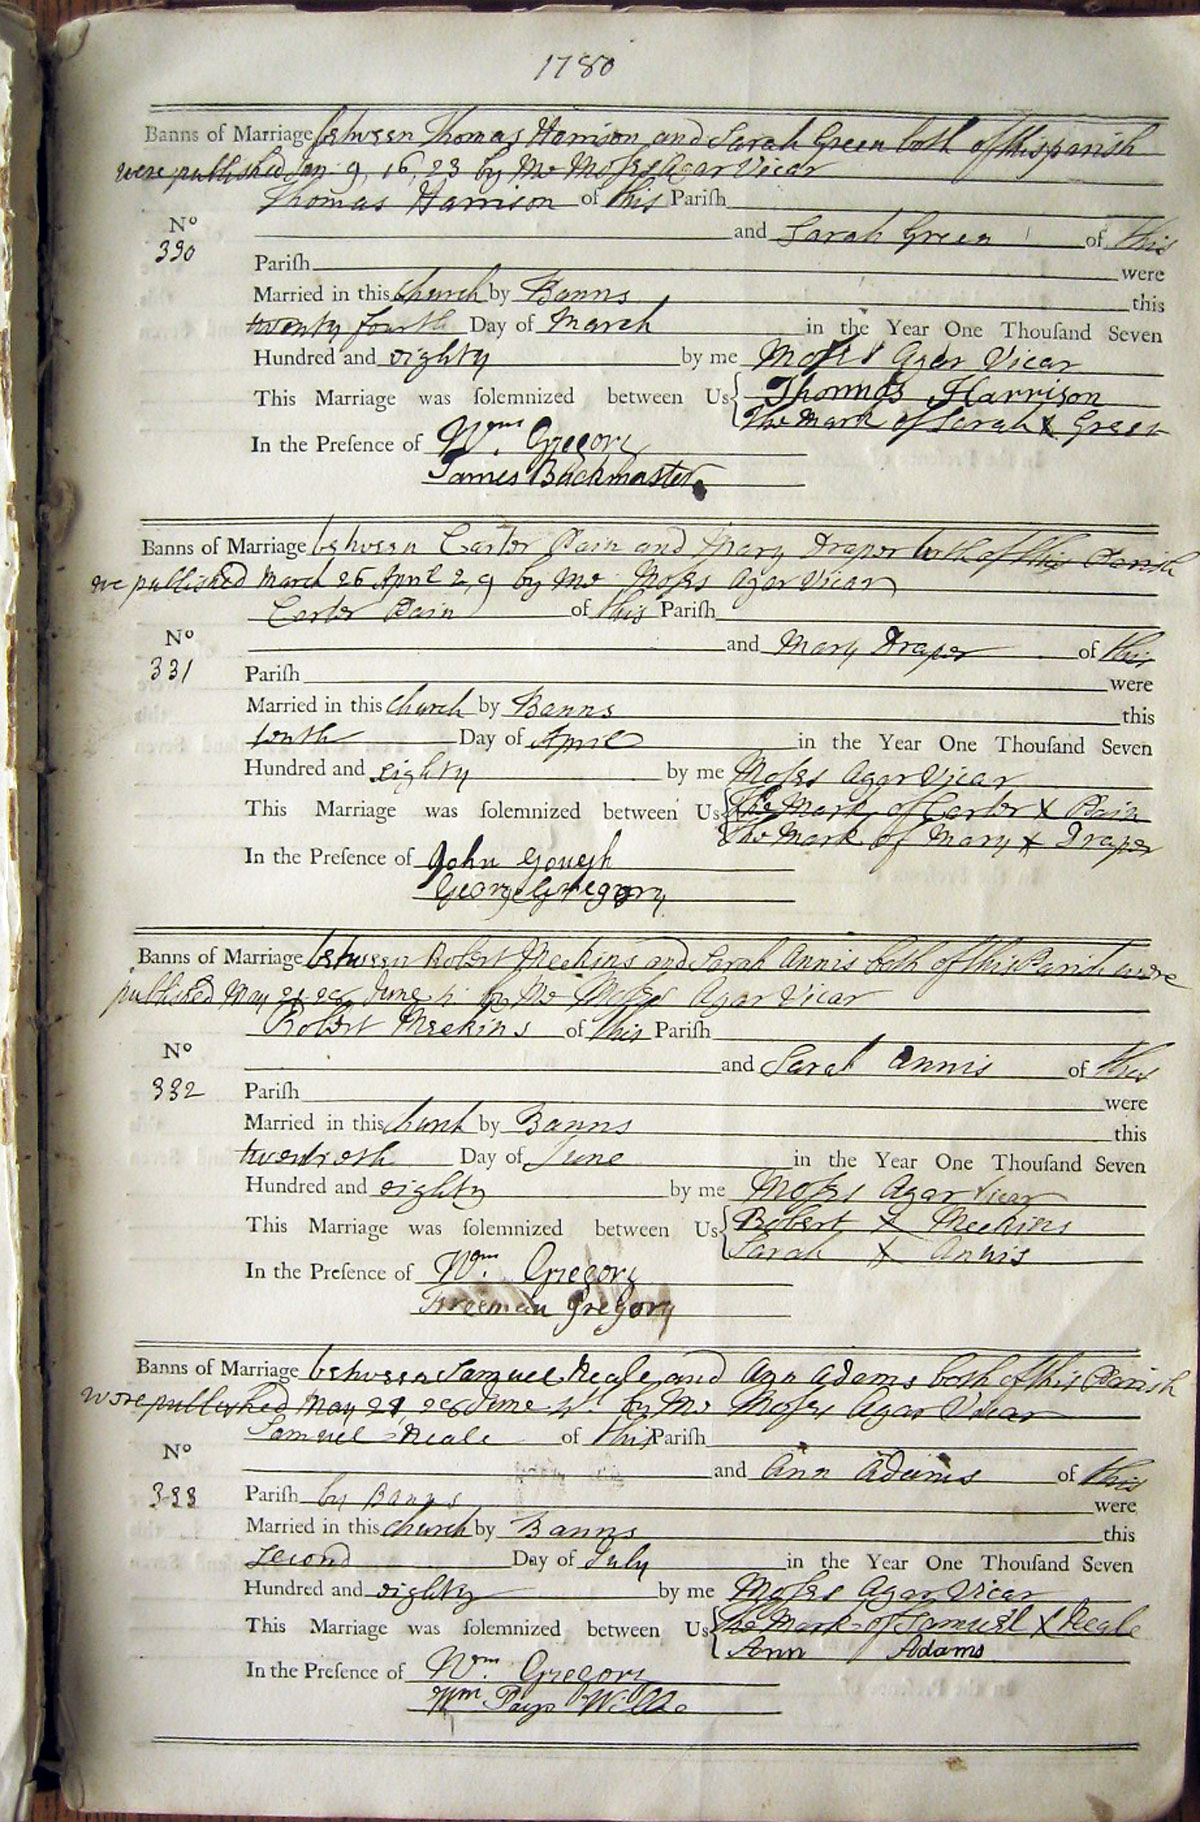 1780
Banns of Marriage between Thomas Harrison and Sarah Green both of this parish
were published Jan. 9, 16, 23 by me Moſes Agar Vicar
Thomas Harrison of this Pariſh
Nº and Sarah Green of this
330
Pariſh were
Married in this church by Banns this
twenty fourth Day of March in the Year One Thouſand Seven
Hundred and eighty by me Moſes Agar Vicar
This Marriage was ſolemnized between Us { Thomas Harrison
The Mark of Sarah X Green
In the Preſence of Wm. Gregory
James Buckmaster
Banns of Marriage between Carter Pain and Mary Draper both of this Parish
we published March 26 April 2, 9 by me Moſes Agar Vicar
Carter Pain of this Pariſh
Nº and Mary Draper of this
331 Pariſh were
Married in this church by Banns this
tenth Day of April in the Year One Thouſand Seven
Hundred and eighty by me Moſes Agar Vicar
This Marriage was ſolemnized between Us { The Mark of Carter X Pain
The Mark of Mary X Draper
In the Preſence of John Gough
George Gregory
Banns of Marriage between Robert Meekins and Sarah Annis both of this Parish were
published May 21 28 June 4 by me Moſes Agar Vicar
Robert Meekins of this Pariſh
Nº and Sarah Annis of this
332 Pariſh were
Married in this church by Banns this
twentieth Day of June in the Year One Thouſand Seven
Hundred and eighty by me Moſes Agar Vicar
This Marriage was ſolemnized between Us { Robert X Meekins
Sarah X Annis
In the Preſence of Wm. Gregory
Freeman Gregory
Banns of Marriage between Samuel Neale and Ann Adams both of this Parish
were published May 21, 28 June 4th by me Moſes Agar Vicar
Samuel Neale of this Pariſh
Nº and Ann Adams of this
333 Pariſh by Banns were
Married in this church by Banns this
second Day of July in the Year One Thouſand Seven
Hundred and eighty by me Moſes Agar Vicar
This Marriage was ſolemnized between Us { The Mark of Samuel X Neale
Ann Adams
In the Preſence of Wm. Gregory
Wm